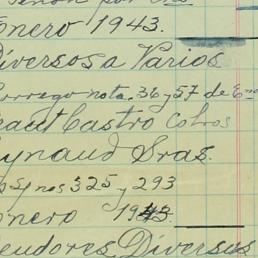 por
Enero 1943.
Diversos a Varios
Corrego nota. 36 y 57 de Ene
Castro Cobros
Reynaud Sras.
nos 325 y 293
Enero 1943
Deudores Diversos